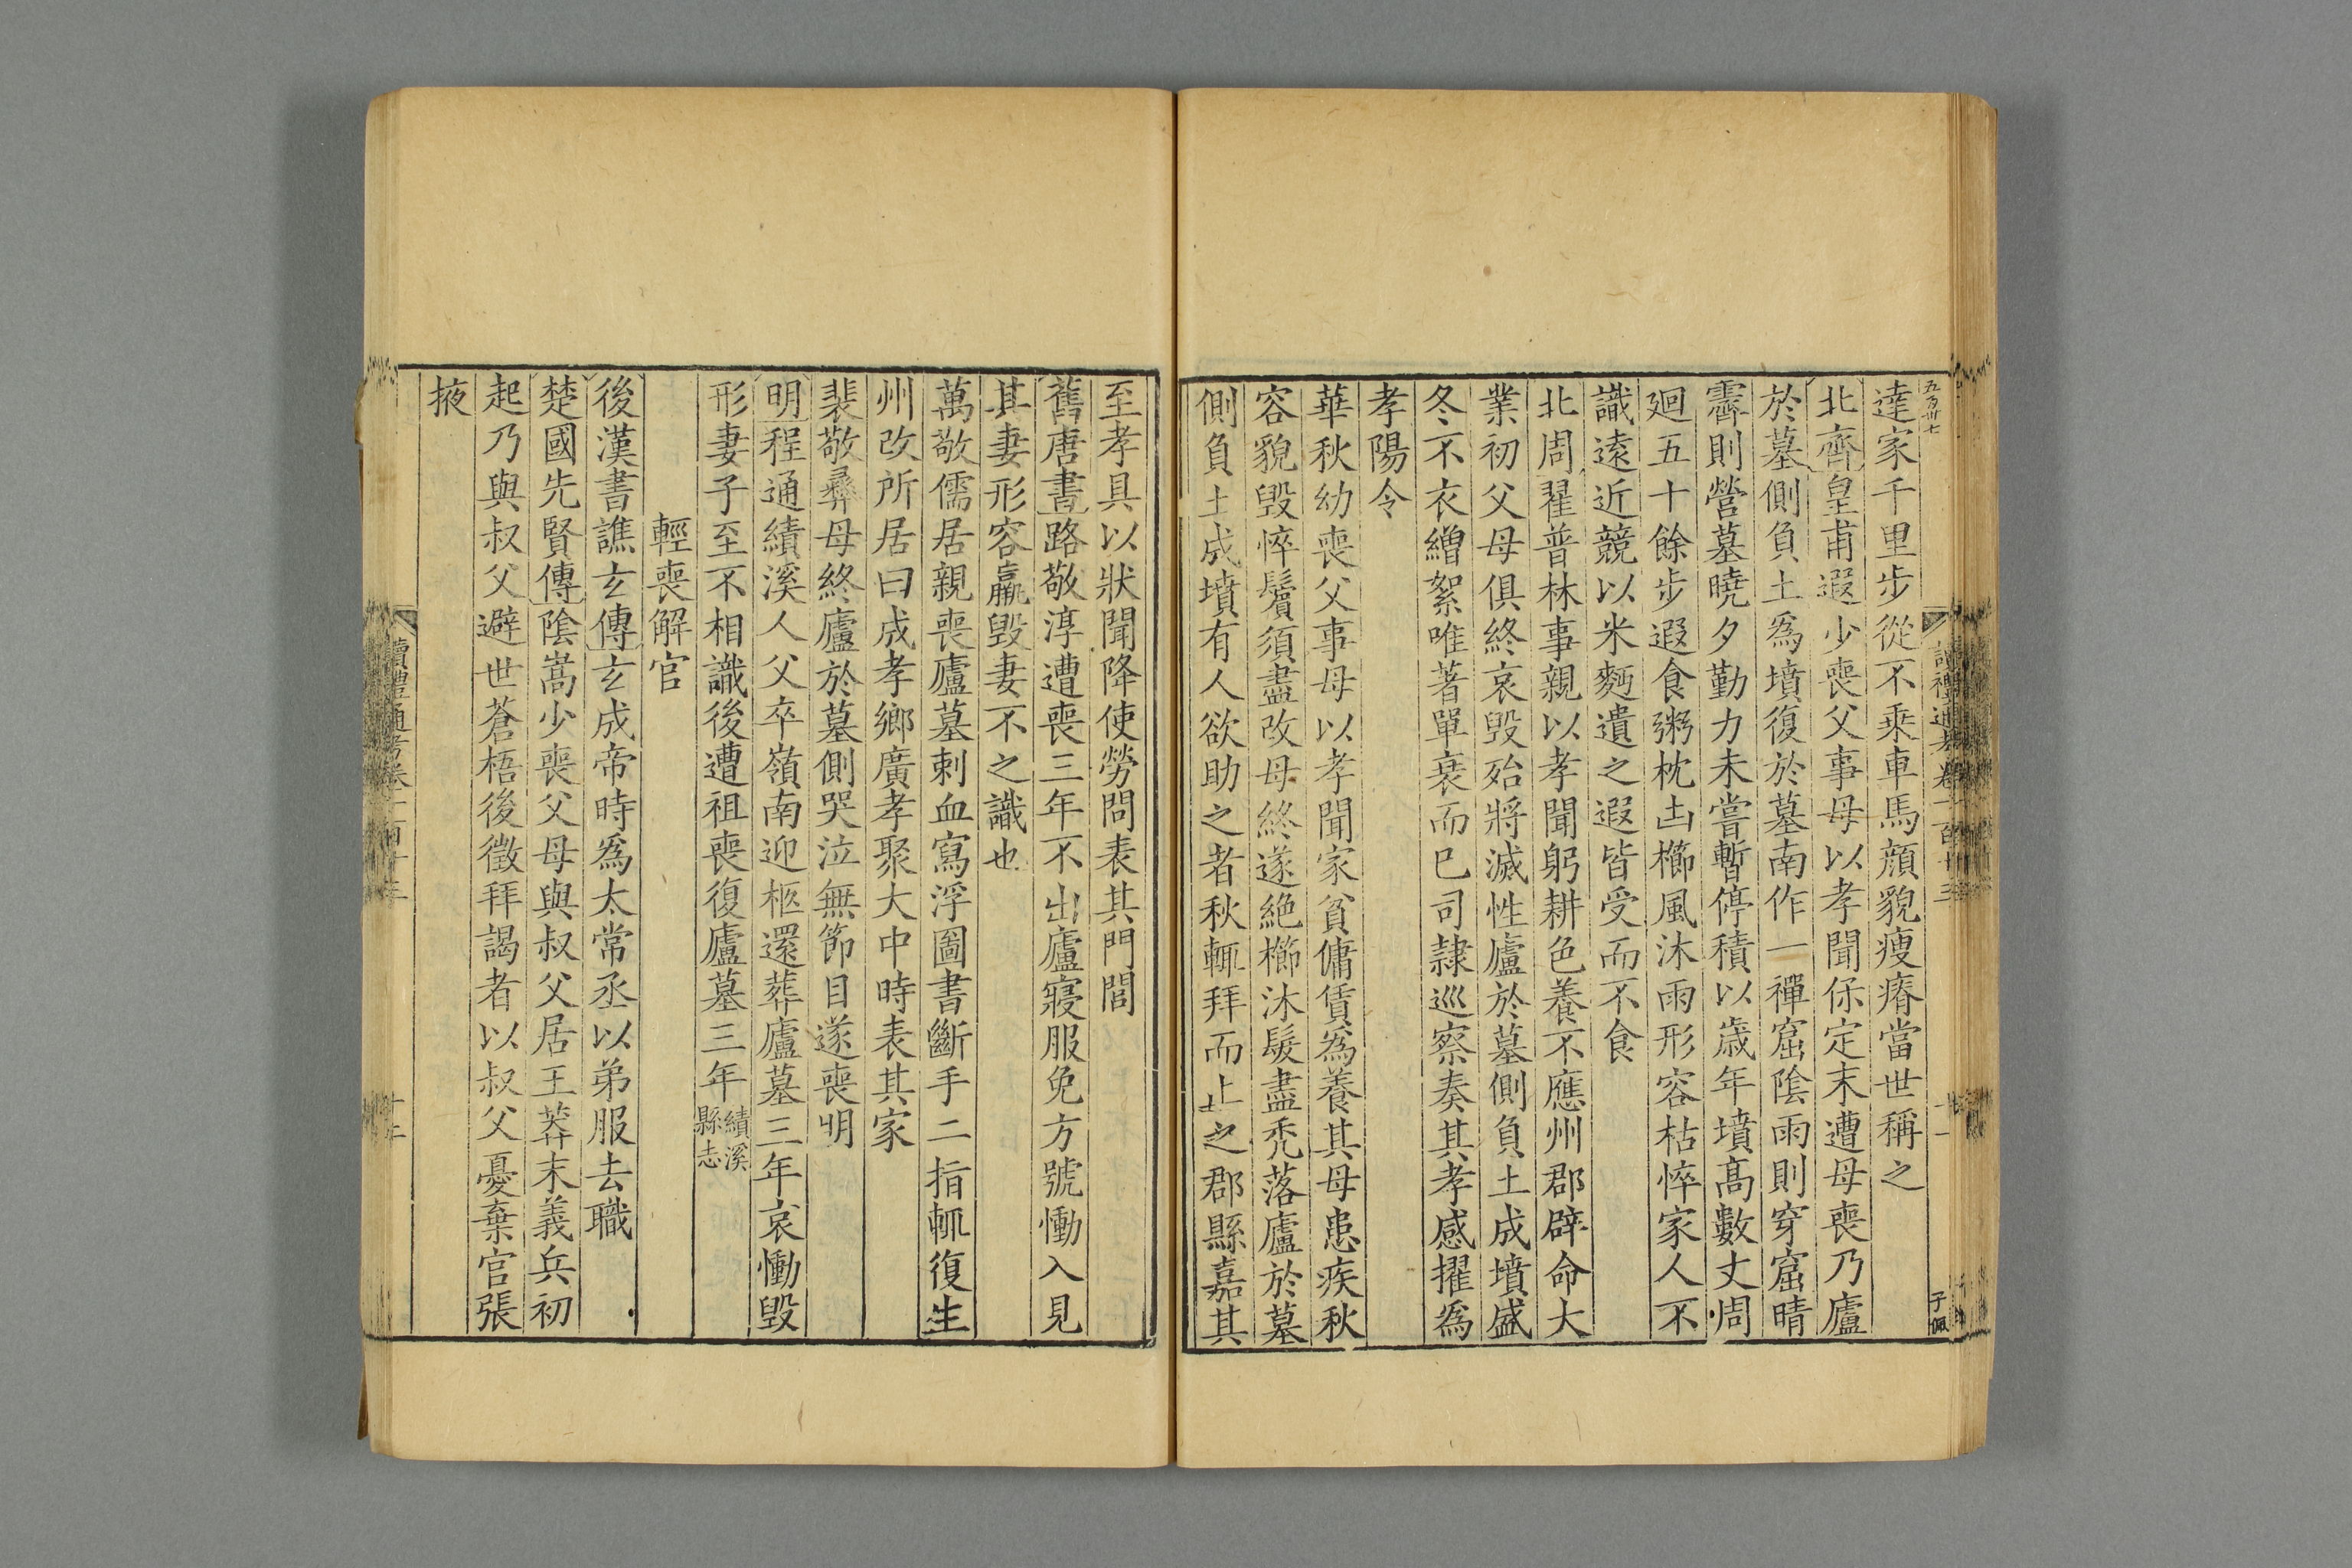 五百卅七
達家千里步從不乘車馬顔貌瘦瘠當世稱之
北齊皇甫遐少喪父事母以孝聞保定末遭母喪乃廬
於墓側負土爲墳復於墓南作一禪窟陰雨則穿窟晴
霽則營墓曉夕勤力未嘗暫停積以歲年墳高數丈周
廻五十餘步遐食粥枕凷櫛風沐雨形容枯悴家人不
識遠近競以米麪遺之遐皆受而不食
北周翟普林事親以孝聞躬耕色養不應州郡辟命大
業初父母俱終哀毁殆將滅性廬於墓側負土成墳盛
冬不衣繒絮唯著單衰而已司隸巡察奏其孝感擢爲
孝陽令
華秋幼喪父事母以孝聞家貧傭賃爲養其母患疾秋
容貌毁悴鬢須盡改母終遂絶櫛沐髮盡禿落廬於墓
側負土成墳有人欲助之者秋輒拜而止之郡縣嘉其
讀禮通考卷一百十三
十一
子佩
至孝具以狀聞降使勞問表其門閭
舊唐書路敬淳遭喪三年不出廬寢服免方號慟入見
其妻形容羸毁妻不之識也
萬敬儒居親喪廬墓刺血寫浮圖書斷手二指輒復生
州改所居曰成孝鄉廣孝聚大中時表其家
裴敬彞母終廬於墓側哭泣無節目遂喪明
明程通績溪人父卒嶺南迎柩還葬廬墓三年哀慟毁
形妻子至不相識後遭祖喪復廬墓三年績溪縣志
輕喪解官
後漢書譙玄傳玄成帝時爲太常丞以弟服去職
楚國先賢傳陰嵩少喪父母與叔父居王莽末義兵初
起乃與叔父避世蒼梧後徵拜謁者以叔父憂棄官張
掖
讀禮通考卷